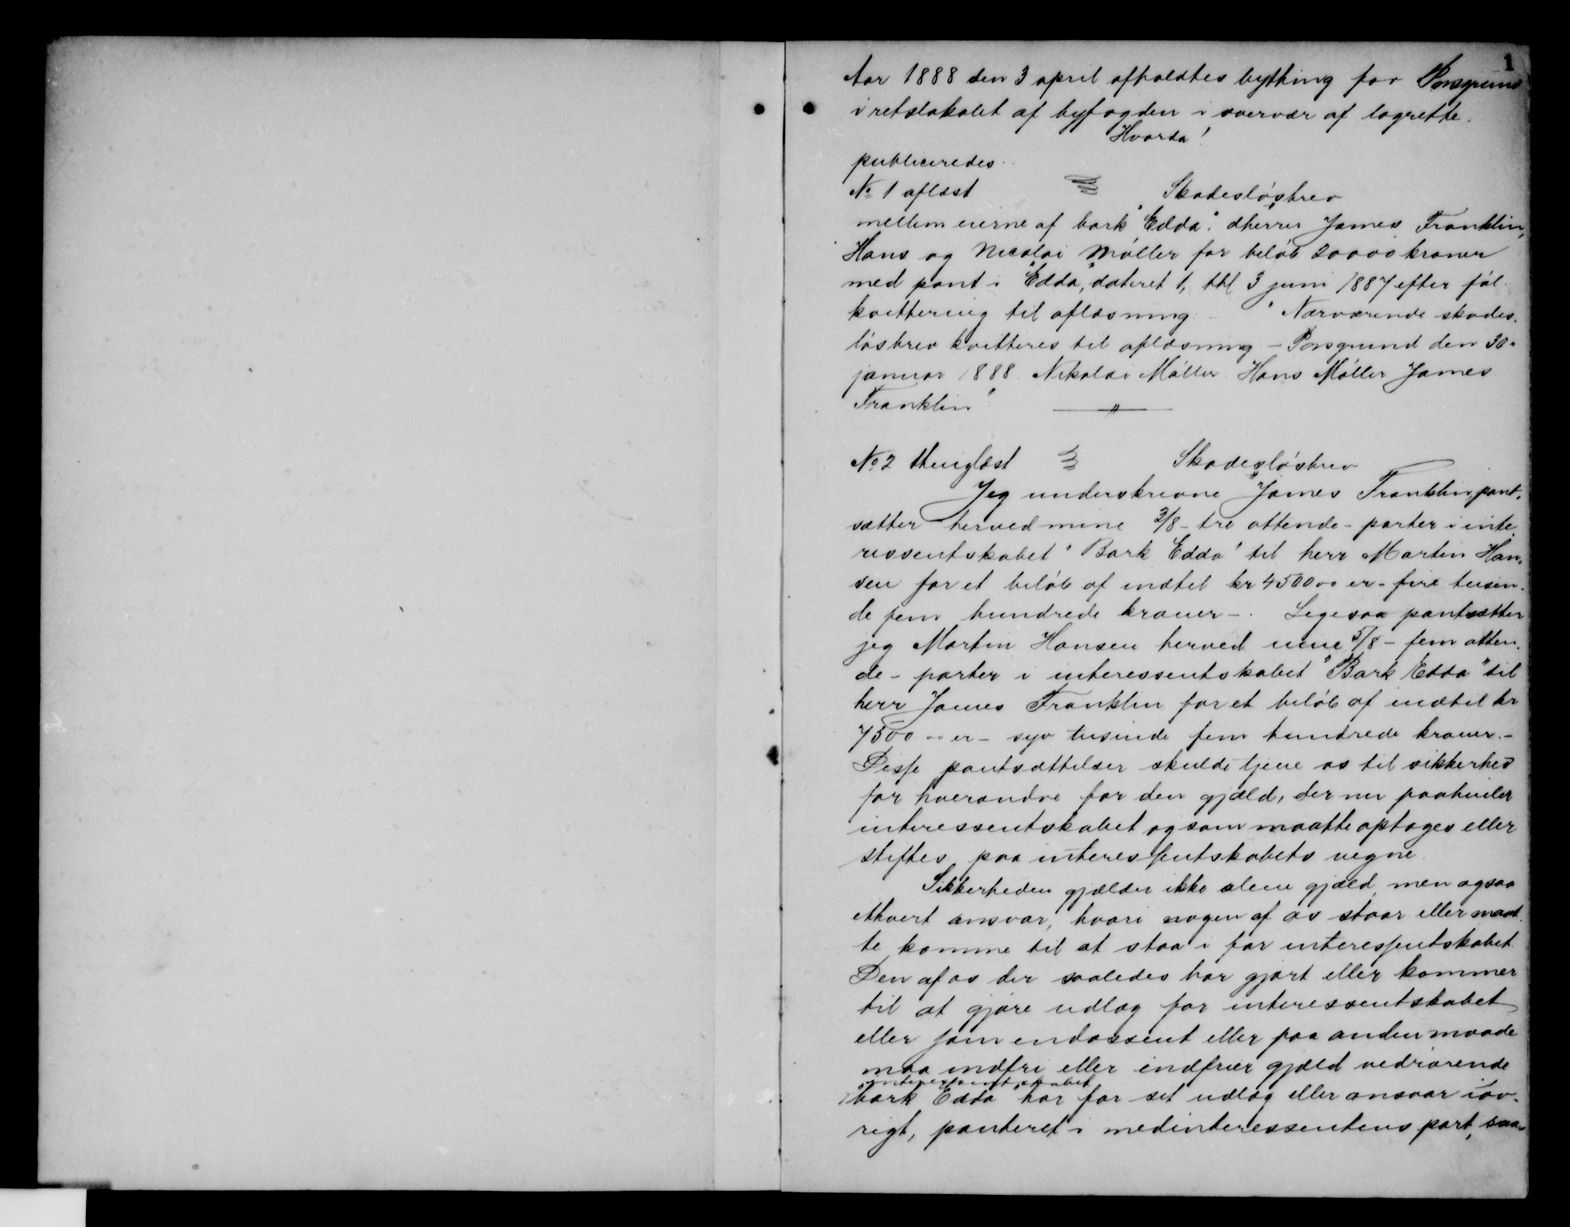 1
Aar 1888 den 3 april afholdtes bything for Porsgrund
i retslokalet af byfogden i overvær af lagrette.
Hvorda!
publiceredes
No 1 aflæst Skadesløsbrev
mellem eierne af bark "Edda", dherrer James Franklin,
Hans og Nicolai Møller for beløb 20000 kroner
med pant i "Edda", dateret 1, thl 3 juni 1887 efter føl.
kvittering til aflæsning. "Nærværende skades-
løsbrev kvitteres til aflæsning – Porsgrund den 30.
januar 1888. Nikolai Møller. Hans Møller James
Franklin"
No 2 thinglæst Skadesløsbrev
"Jeg underskrevne James Franklin pant-
sætter herved mine 3/8 – tre ottende – parter i inte-
ressentskabet "Bark Edda" til herr Martin Han-
sen for et beløb af indtil kr 4500 00 er – fire tusin-
de fem hundrede kroner –. Ligesaa pantsætter
jeg Martin Hansen herved mine 5/8 – fem otten-
de – parter i interessentskabet "Bark Edda" til
herr James Franklin for et beløb af indtil kr
7500 00 er – syv tusinde fem hundrede kroner. –
Disse pantsættelser skulde tjene os til sikkerhed
for hverandre for den gjæld, der nu paahviler
interessentskabet og som maatte optages eller
stiftes paa interessentskabets vegne.
Sikkerheden gjælder ikke alene gjæld, men ogsaa
ethvert ansvar, hvori nogen af os staar eller maat-
te komme til at staa i for interessentskabet.
Den af os der saaledes har gjort eller kommer
til at gjøre udlæg for interessentskabet
eller som endossent eller paa anden maade
maa indfri eller indfrier gjæld vedrørende
interessentskabet
"bark Edda" har for sit udlæg eller ansvar iøv-
rigt, panteret i medinteressentens part, saa-